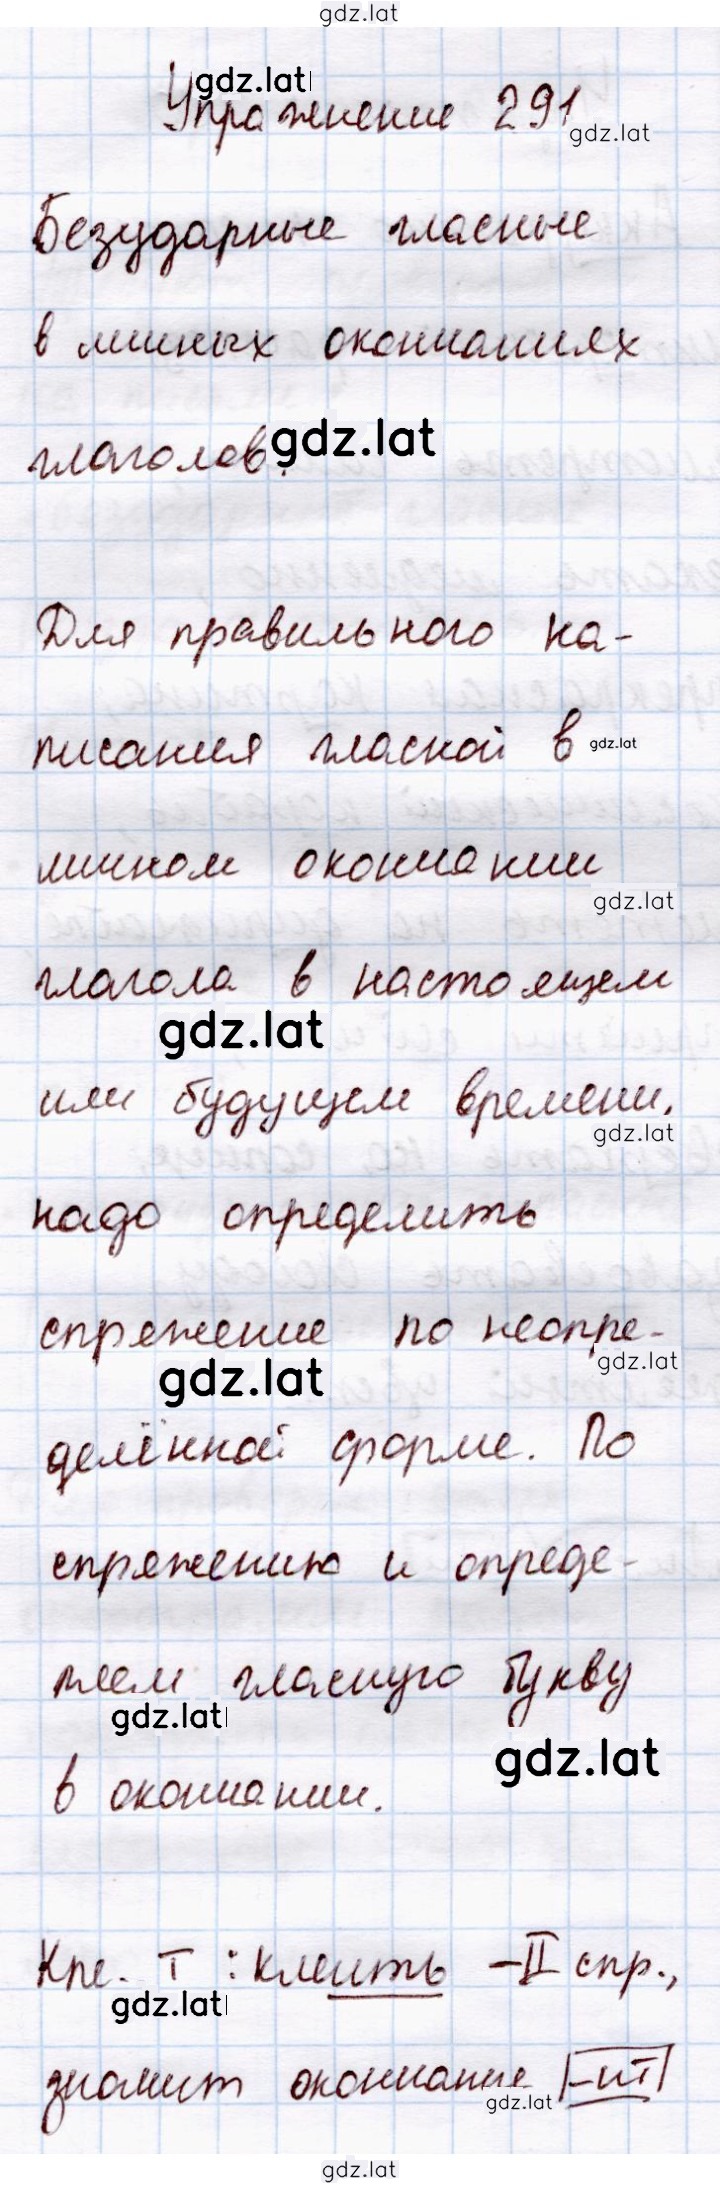 gdz.lat
gdz.lat
Упражнение 291
gdz.lat
Безударные гласные
в личных окончаниях
глаголов.
gdz.lat
Для правильного на-
писания гласной в
gdz.lat
личном окончании
gdz.lat
глагола в настоящем
gdz.lat
или будущем времени,
gdz.lat
надо определить
спряжение по неопре-
gdz.lat
gdz.lat
делённой форме. По
спряжению и опреде-
ляем гласную букву
gdz.lat
gdz.lat
в окончании.
Кле. т : клеить - II спр.,
gdz.lat
значит окончание -ит
gdz.lat
gdz.lat